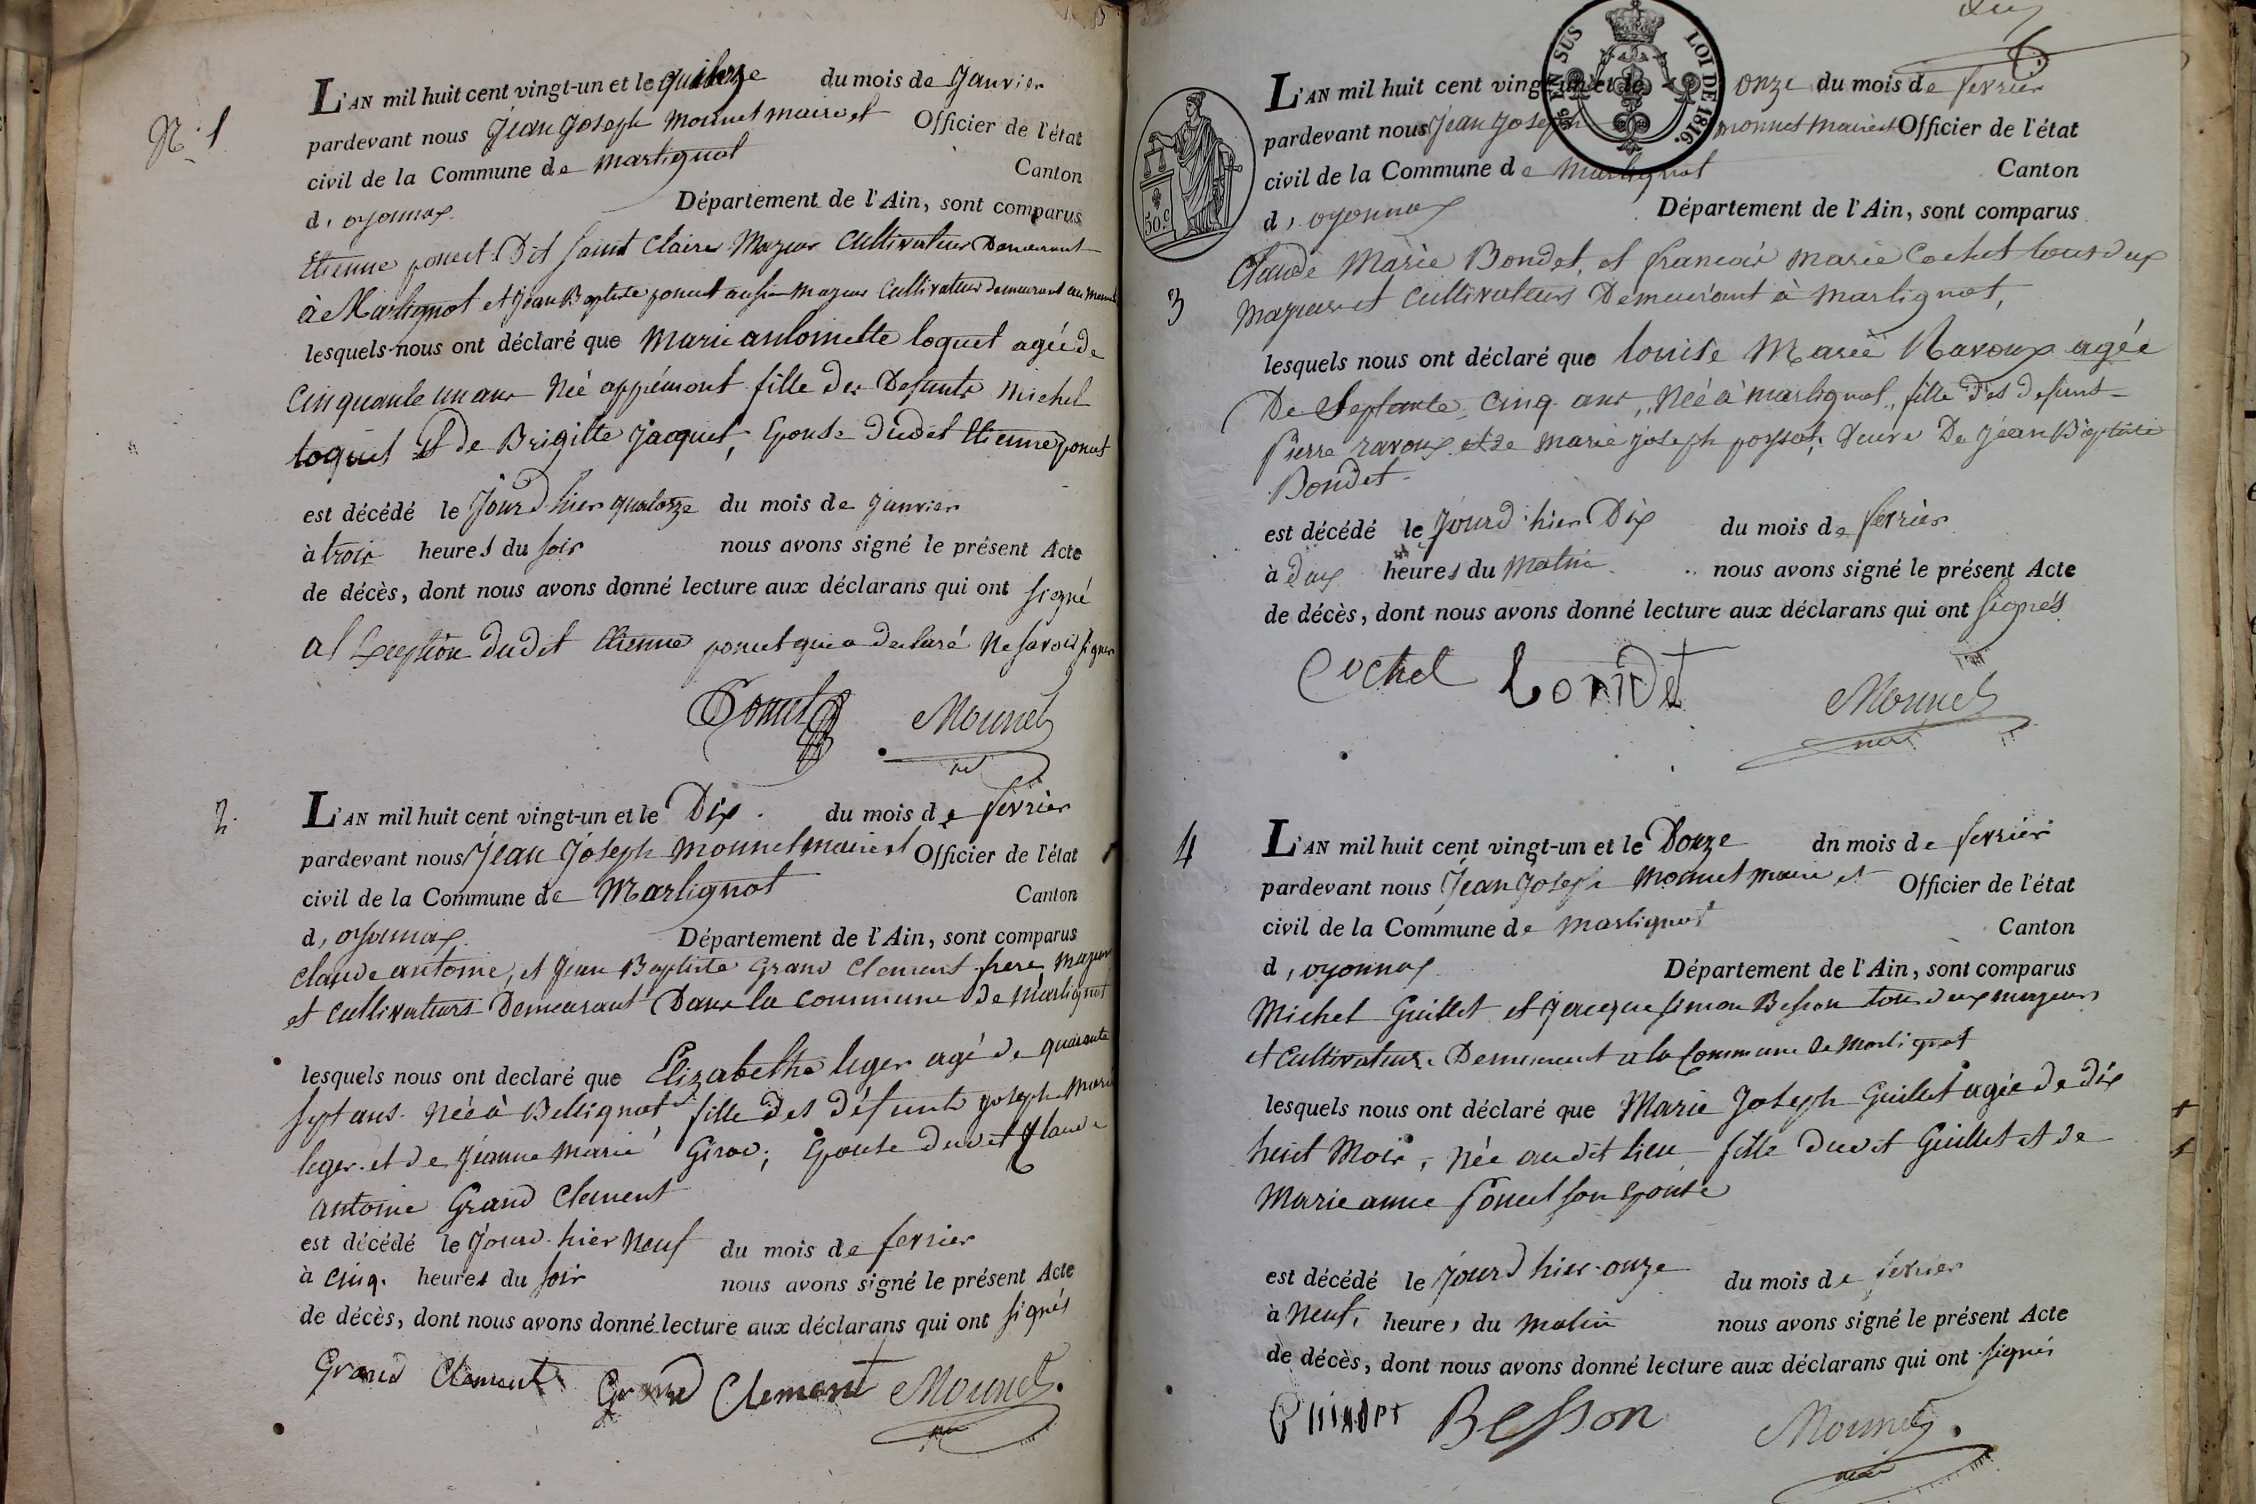 N.º 1
L'AN mil huit cent vingt-un et le quinze du mois de Janvier
pardevant nous Jean Joseph Monnet maire et Officier de l'état
civil de la Commune de Martignat Canton
d, oyonnax. Département de l'Ain, sont comparus
Etienne poncet Dit Saint Claire Majeur Cultivateur Demeurant
à Martignat et Jean Baptiste poncet aussi Majeur Cultivateur demeurant au même
lesquels nous ont déclaré que Marie antoinette loquet agée de
Cinquante un ans Née appémont fille des Defunts Michel
loquet Et de Brigitte Jacquet, Epouse dudet Etienne poncet
est décédé le Jourd hier quatorze du mois de Janvier
à trois heures du soir nous avons signé le présent Acte
de décès, dont nous avons donné lecture aux déclarans qui ont signé
al Exeption dudit Etienne poncet qui a declaré Ne savoir signer
Poncet Monnet
2.
L'AN mil huit cent vingt-un et le Dix. du mois de fevrier
pardevant nous Jean Joseph Monnet maire et Officier de l'état
civil de la Commune de Martignat Canton
d, oyonnax. Département de l'Ain, sont comparus
Claude antoine, et Jean Baptiste Grand Clement frere Majeur
et Cultivateurs Demeurant Dans la Commune de Martignat
lesquels nous ont declaré que Elizabethe leger agé de quarante
sept ans. Née à Bellignat, fille des défunts Joseph Marie
leger et de Jeanne Marie Girod; Epouse dudit Claude
antoine Grand Clement
est décédé le Jourd hier Neuf du mois de fevrier
à Cinq. heures du soir nous avons signé le présent Acte
de décès, dont nous avons donné lecture aux déclarans qui ont signés
Grand Clement Grand Clement Monnet
EN SUS LOI DE 1816.
50.c
3
L'AN mil huit cent vingt-un et le onze du mois de fevrier
pardevant nous Jean Joseph Monnet Maire et Officier de l'état
civil de la Commune de Martignat Canton
d, oyonnax Département de l'Ain, sont comparus
Claude Marie Bondet, et francois Marie Cochet tous dux
Majeur et Cultivateurs Demeurant à Martignat,
lesquels nous ont déclaré que louise Marie Ravoux agée
De Septante Cinq ans, Née à Martignat, fille des defunt
Pierre ravoux et de Marie Joseph , veuve De Jean Baptiste
Bondet
est décédé le Jourd hier Dix du mois de fevrier
à dux heures du Matin nous avons signé le présent Acte
de décès, dont nous avons donné lecture aux déclarans qui ont signés
Cochet bondet Monnet
4
L'AN mil huit cent vingt-un et le Douze dn mois de fevrier
pardevant nous Jean Joseph Monnet Maire et Officier de l'état
civil de la Commune de Martignat Canton
d, oyonnax Département de l'Ain, sont comparus
Michel Guillet et Jacque simon Besson tous dux majeurs
et Cultivateurs Demeurant a la Commune de Martignat
lesquels nous ont déclaré que Marie Joseph Guillet agée de dix
huit Mois, Née audit lieu fille dudit Guillet et de
Marie anne Poncet son Epouse
est décédé le Jourd hier onze du mois de fevrier
à Neuf, heures du Matin nous avons signé le présent Acte
de décès, dont nous avons donné lecture aux déclarans qui ont signés
Besson Monnet